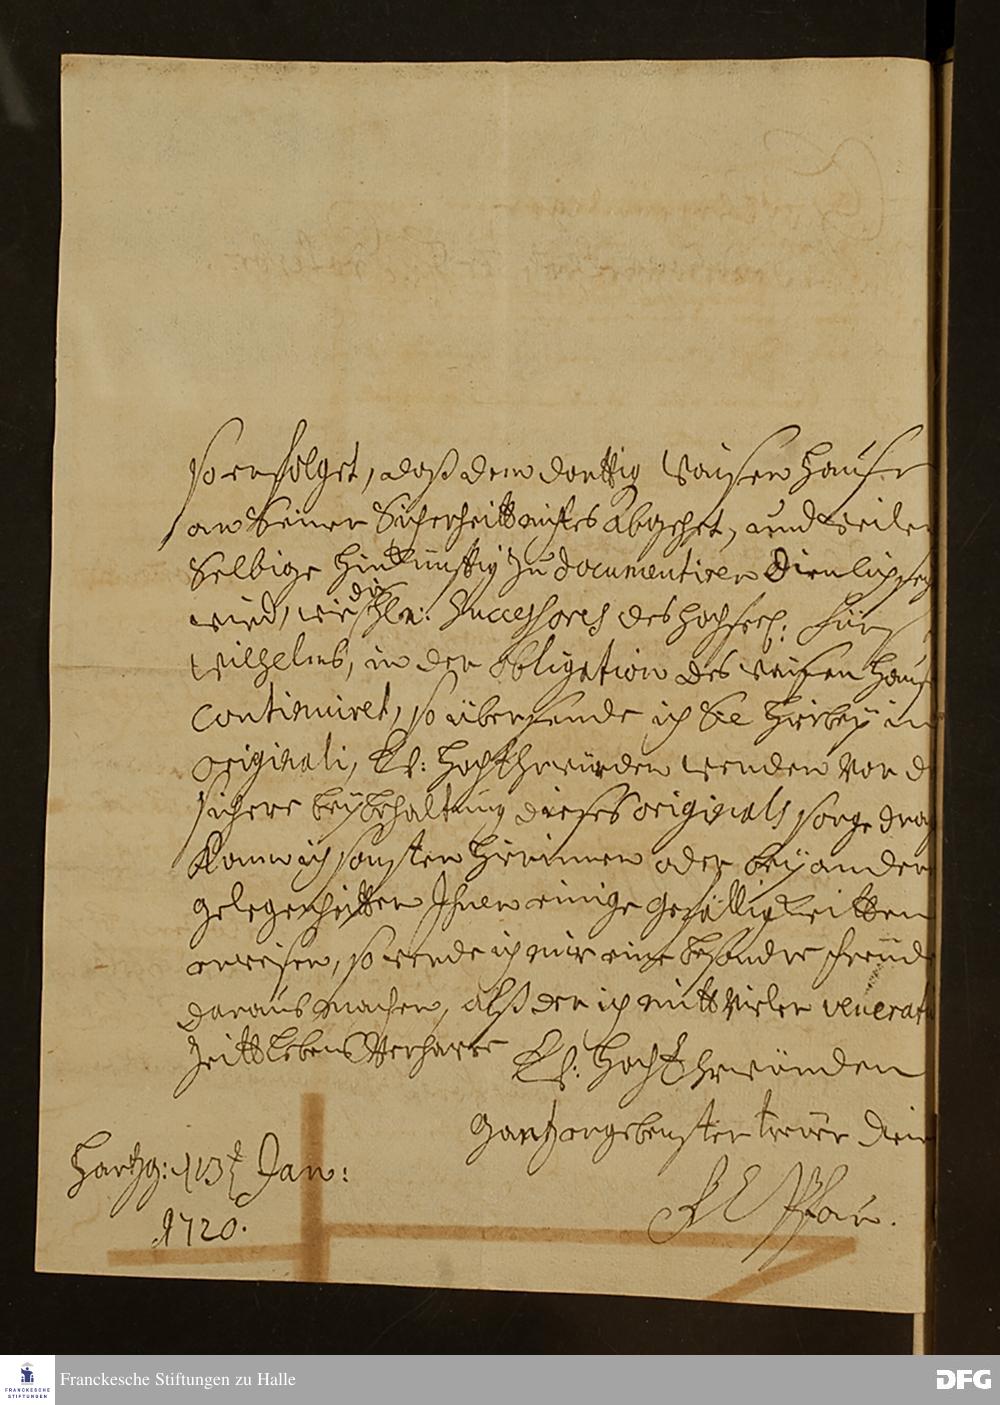 so erfolget, daß dem dorttig Waisen Hause
an Seiner Sicherheitt nichts abgehet, und weilen
Selbige hinkünfftig zu documentiren dienlich sey
wird, wie die Hln: Successores des hochseel: Fürst
Wilhelms, in der obligation des Waisen Hauß
continuiret, so übersende ich Sie hierbey in
originali, Ew: HochEhrwürden werden vor d
sichere beybehaltung dieses originals sorge drag
Kann ich sonsten hierinnen oder bey andern
gelegenheitten Ihnen einige gefälligkeitten
erweisen, so werde ich mir eine besondre freude
daraus machen, alß der ich mitt vieler venerati
Zeitt Lebens Verharre Ew: HochEhrwürden
gantz ergebenster treüer Dien
Hartzg: d 13t Jan:
1720. Pfau.
Franckesche Stiftungen zu Halle
FRANCKESCHE
STIFTUNGEN
DFG